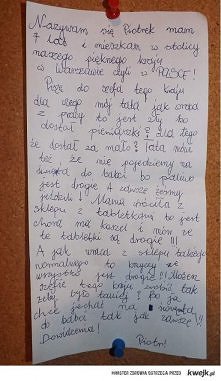 Nazywam się Piotrek mam
7 lat i mieszkam w stolicy
naszego pięknego kraju
w Warszawie czyli w POLSCE!
Piszę do szefa tego kraju
dla czego mój tata jak wraca
z pracy to jest zły bo
dostał pieniążki? dla tego
że dostał za mało? Tata mówi
też że nie pojedziemy na
święta do babci bo paliwo
jest drogie A zawsze
jeździli! Mama wróciła z
sklepu z tabletkami bo jest
chora ma kaszel i mówi że
te tabletki są drogie !!!
A jak wraca z sklepu takiego
normalnego to krzyczy że
wszystko jest drogie!!! Możesz
szefie tego kraju zrobić tak
żeby było taniej? Bo ja
chcę jechać na święta
do babci tak jak zawsze!!
Dowidzenia! Piotr!
kwejk.pl